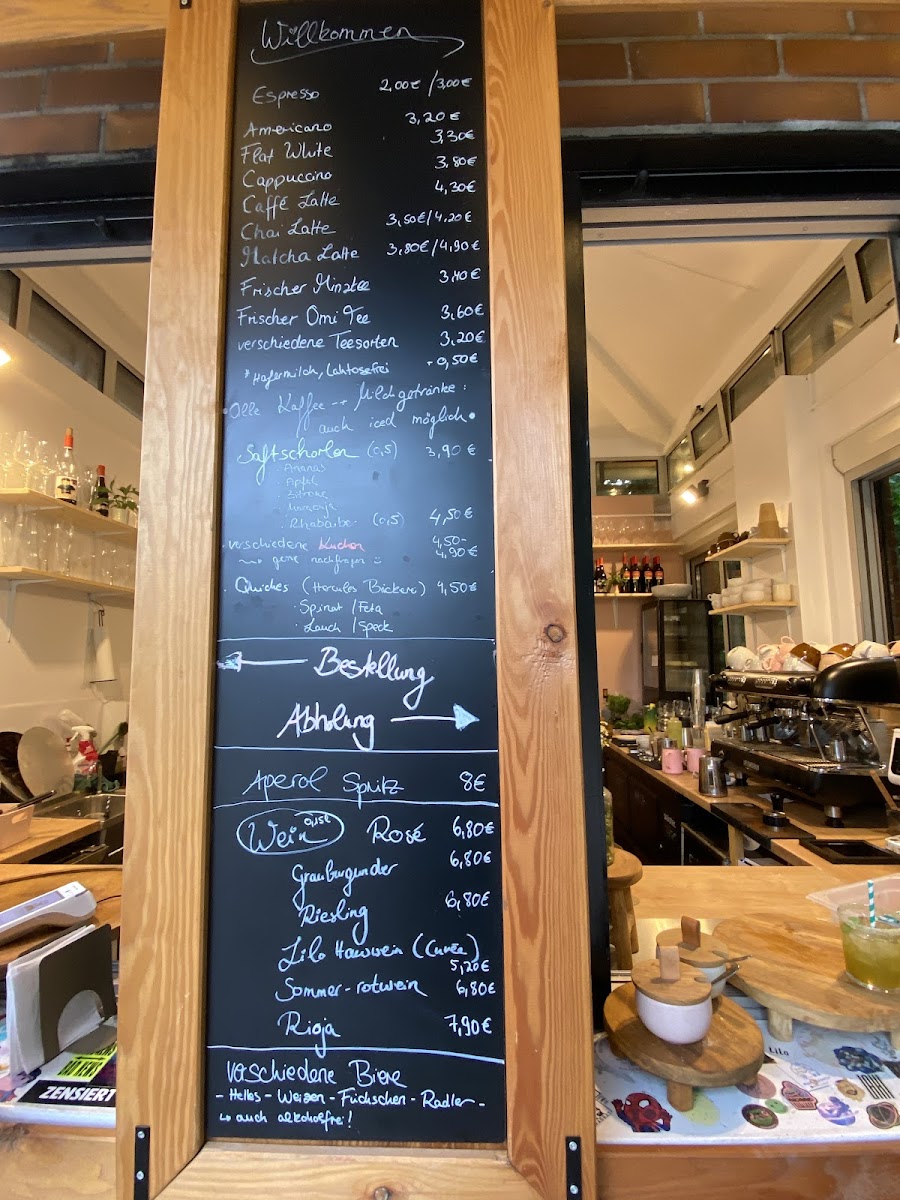 Willkommen
Espresso 2,00€ / 3,00€
Americano 3,20€
Flat White 3,30€
Cappuccino 3,80€
Caffé Latte 4,30€
Chai Latte 3,50€/4,20€
Matcha Latte 3,80€/4,90€
Frischer Minztee 3,40€
Frischer Omi Tee 3,60€
verschiedene Teesorten 3,20€
*Hafermilch, Laktosefrei +0,50€
Alle Kaffee- + Milchgetränke:
auch iced möglich
Saftschorlen (0,5) 3,90€
· Ananas
· Apfel
· Zitrone
· Maracuja
· Rhabarber (0,5) 4,50€
verschiedene Kuchen 4,50-
gerne nachfragen :) 4,90€
Quiches (Hercules Bäckerei) 4,50€
· Spinat / Feta
· Lauch / Speck
Bestellung
Abholung
Aperol Spritz 8€
Wein 0,15l Rosé 6,80€
Grauburgunder 6,80€
Riesling 6,80€
Lilo Hauswein (Cuvée)
5,20€
Sommer-rotwein 6,80€
Rioja 7,90€
verschiedene Biere
- Helles - Weizen - Füchschen - Radler -
↳ auch alkoholfrei!
ZENSIERT
Lilo